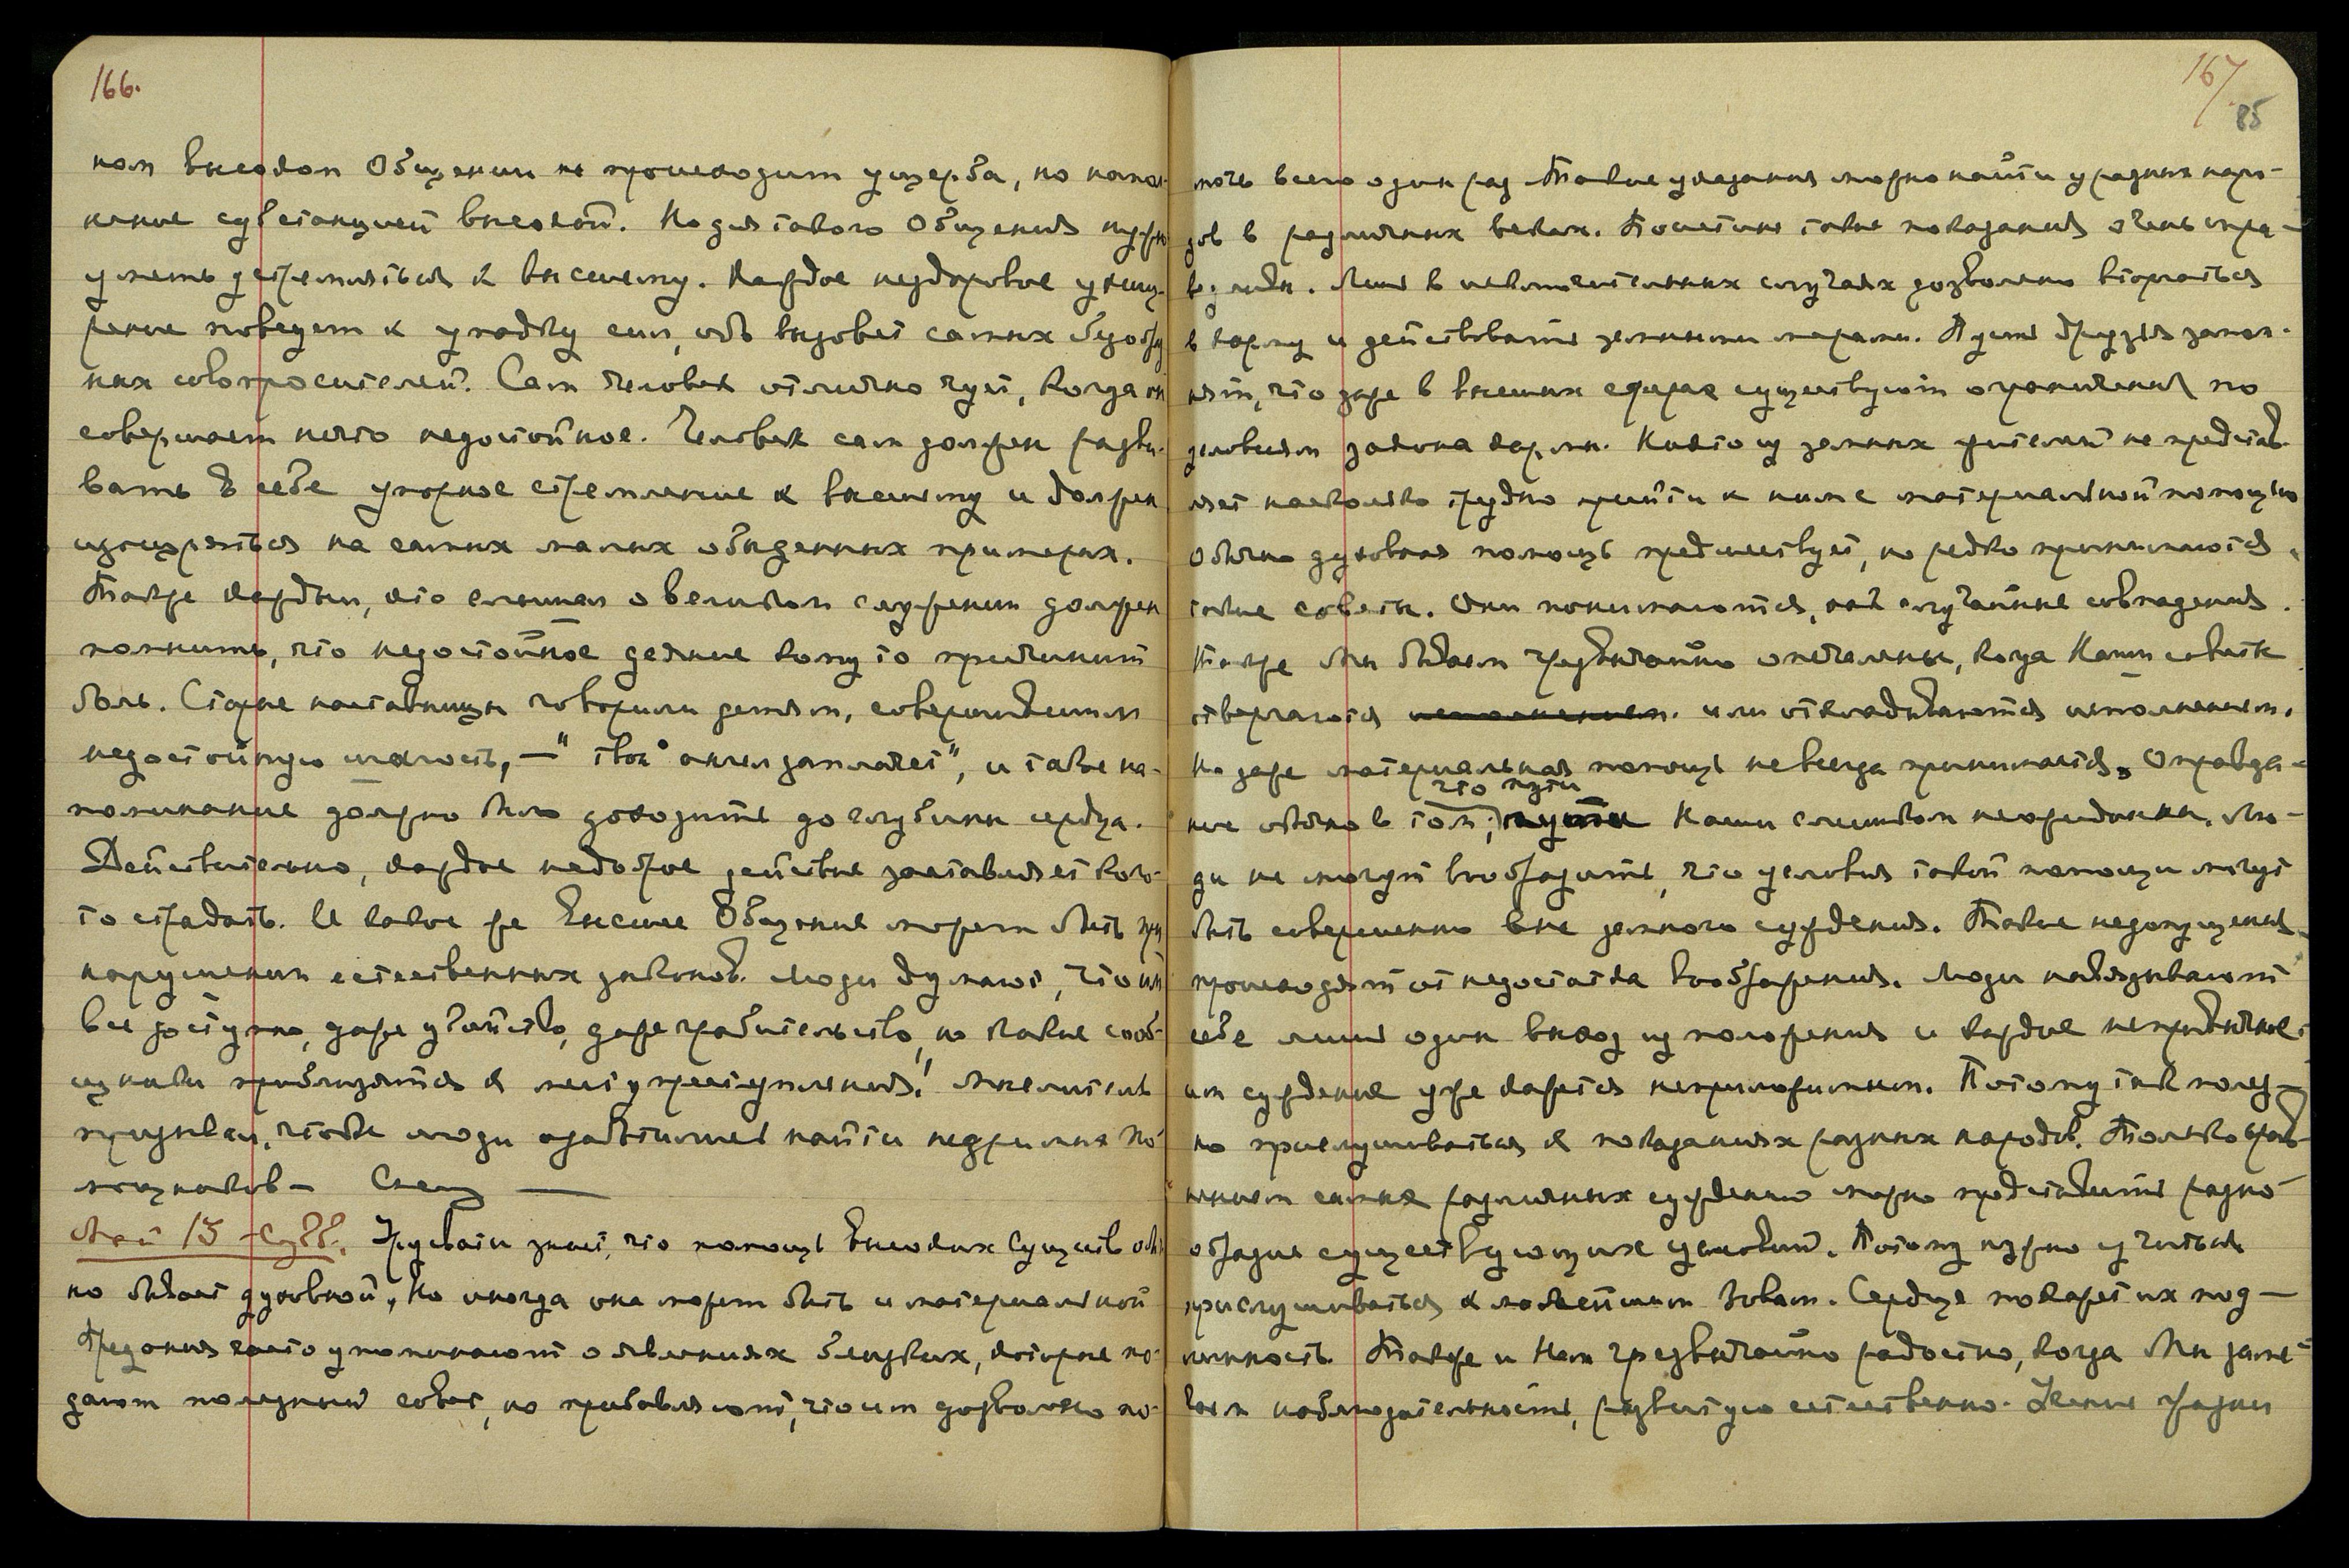 166.
ном высоком Общении не происходит ущерба, но напол-
нение субстанцией высокой. Но для такого Общения нужно
уметь устремляться к высшему. Каждое нездоровое ухищ-
рение поведет к упадку сил, ибо вызовет самых безобраз
ных совопросителей. Сам человек отлично чует, когда он
совершает нечто недостойное. Человек сам должен разви-
вать в себе упорное стремление к высшему и должен
изощряться на самых малых обыденных примерах.
Также каждый, кто слышал о великом служении должен
помнить, что недостойное деяние кому то причинит
боль. Старые наставницы говорили детям, совершившим
недостойную шалость, — "твой ангел заплачет", и такое на-
поминание должно было доходить до глубины сердца.
Действительно, каждое недоброе действие заставляет кого-
то страдать. И какое же Высшее Общение может быть при
нарушении естественных законов. Люди думают, что им
все доступно, даже убийство, даже грабительство, но какие сооб-
щники приблизятся к месту преступления! Мыслитель
призывал, чтобы люди озаботились найти незримых По-
мощников —
Май 15 – Субб. Урусвати знает, что помощь Высоких Существ обыч
но бывает духовной, Но иногда она может быть и материальной
Предания часто упоминают о явлениях близких, которые по-
дают полезный совет, но прибавляют, что им дозволено по-
167
85
мочь всего один раз Такие указания можно найти у разных наро-
дов в различных веках. Поистине такие показания очень спра-
ведливы. Лишь в исключительных случаях дозволено вторгаться
в карму и действовать земными мерами. Пусть друзья запом-
нят, что даже в высших сферах существуют ограничения по
условиям закона кармы. Никто из земных жителей не представ-
ляет насколько трудно прийти к ним с материальной помощью
Обычно духовная помощь предшествует, но редко принимаются
такие советы. Они понимаются, как случайные совпадения.
Также Мы бываем чрезвычайно опечалены, когда Наши советы
отвергаются исполнением. или откладываются исполнением.
Но даже материальная помощь не всегда принимается. Оправда-
что пути
ние обычно в том, пути Наши слишком неожиданны. Лю-
ди не могут вообразить, что условия такой помощи могут
быть совершенно вне земного суждения. Такие недопущения
происходят от недостатка воображения. Люди навязывают
себе лишь один выход из положения и каждое непривычное
им суждение уже кажется неприложимым. Потому так полез-
но прислушиваться к показаниям разных народов. Только срав-
нением самых различных суждений можно представить разно-
образие существующих условий. Потому нужно учиться
прислушиваться к малейшим зовам. Сердце покажет их под-
линность. Также и Нам чрезвычайно радостно, когда Мы заме-
чаем наблюдательность, развитую естественно. Учение жизни